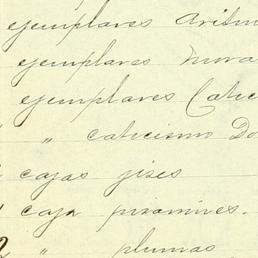 ejemplares Aritm
ejemplares Mora
ejemplares Catec
" catecismo Do
cajas gises
caja pizarrines.
2 " plumas